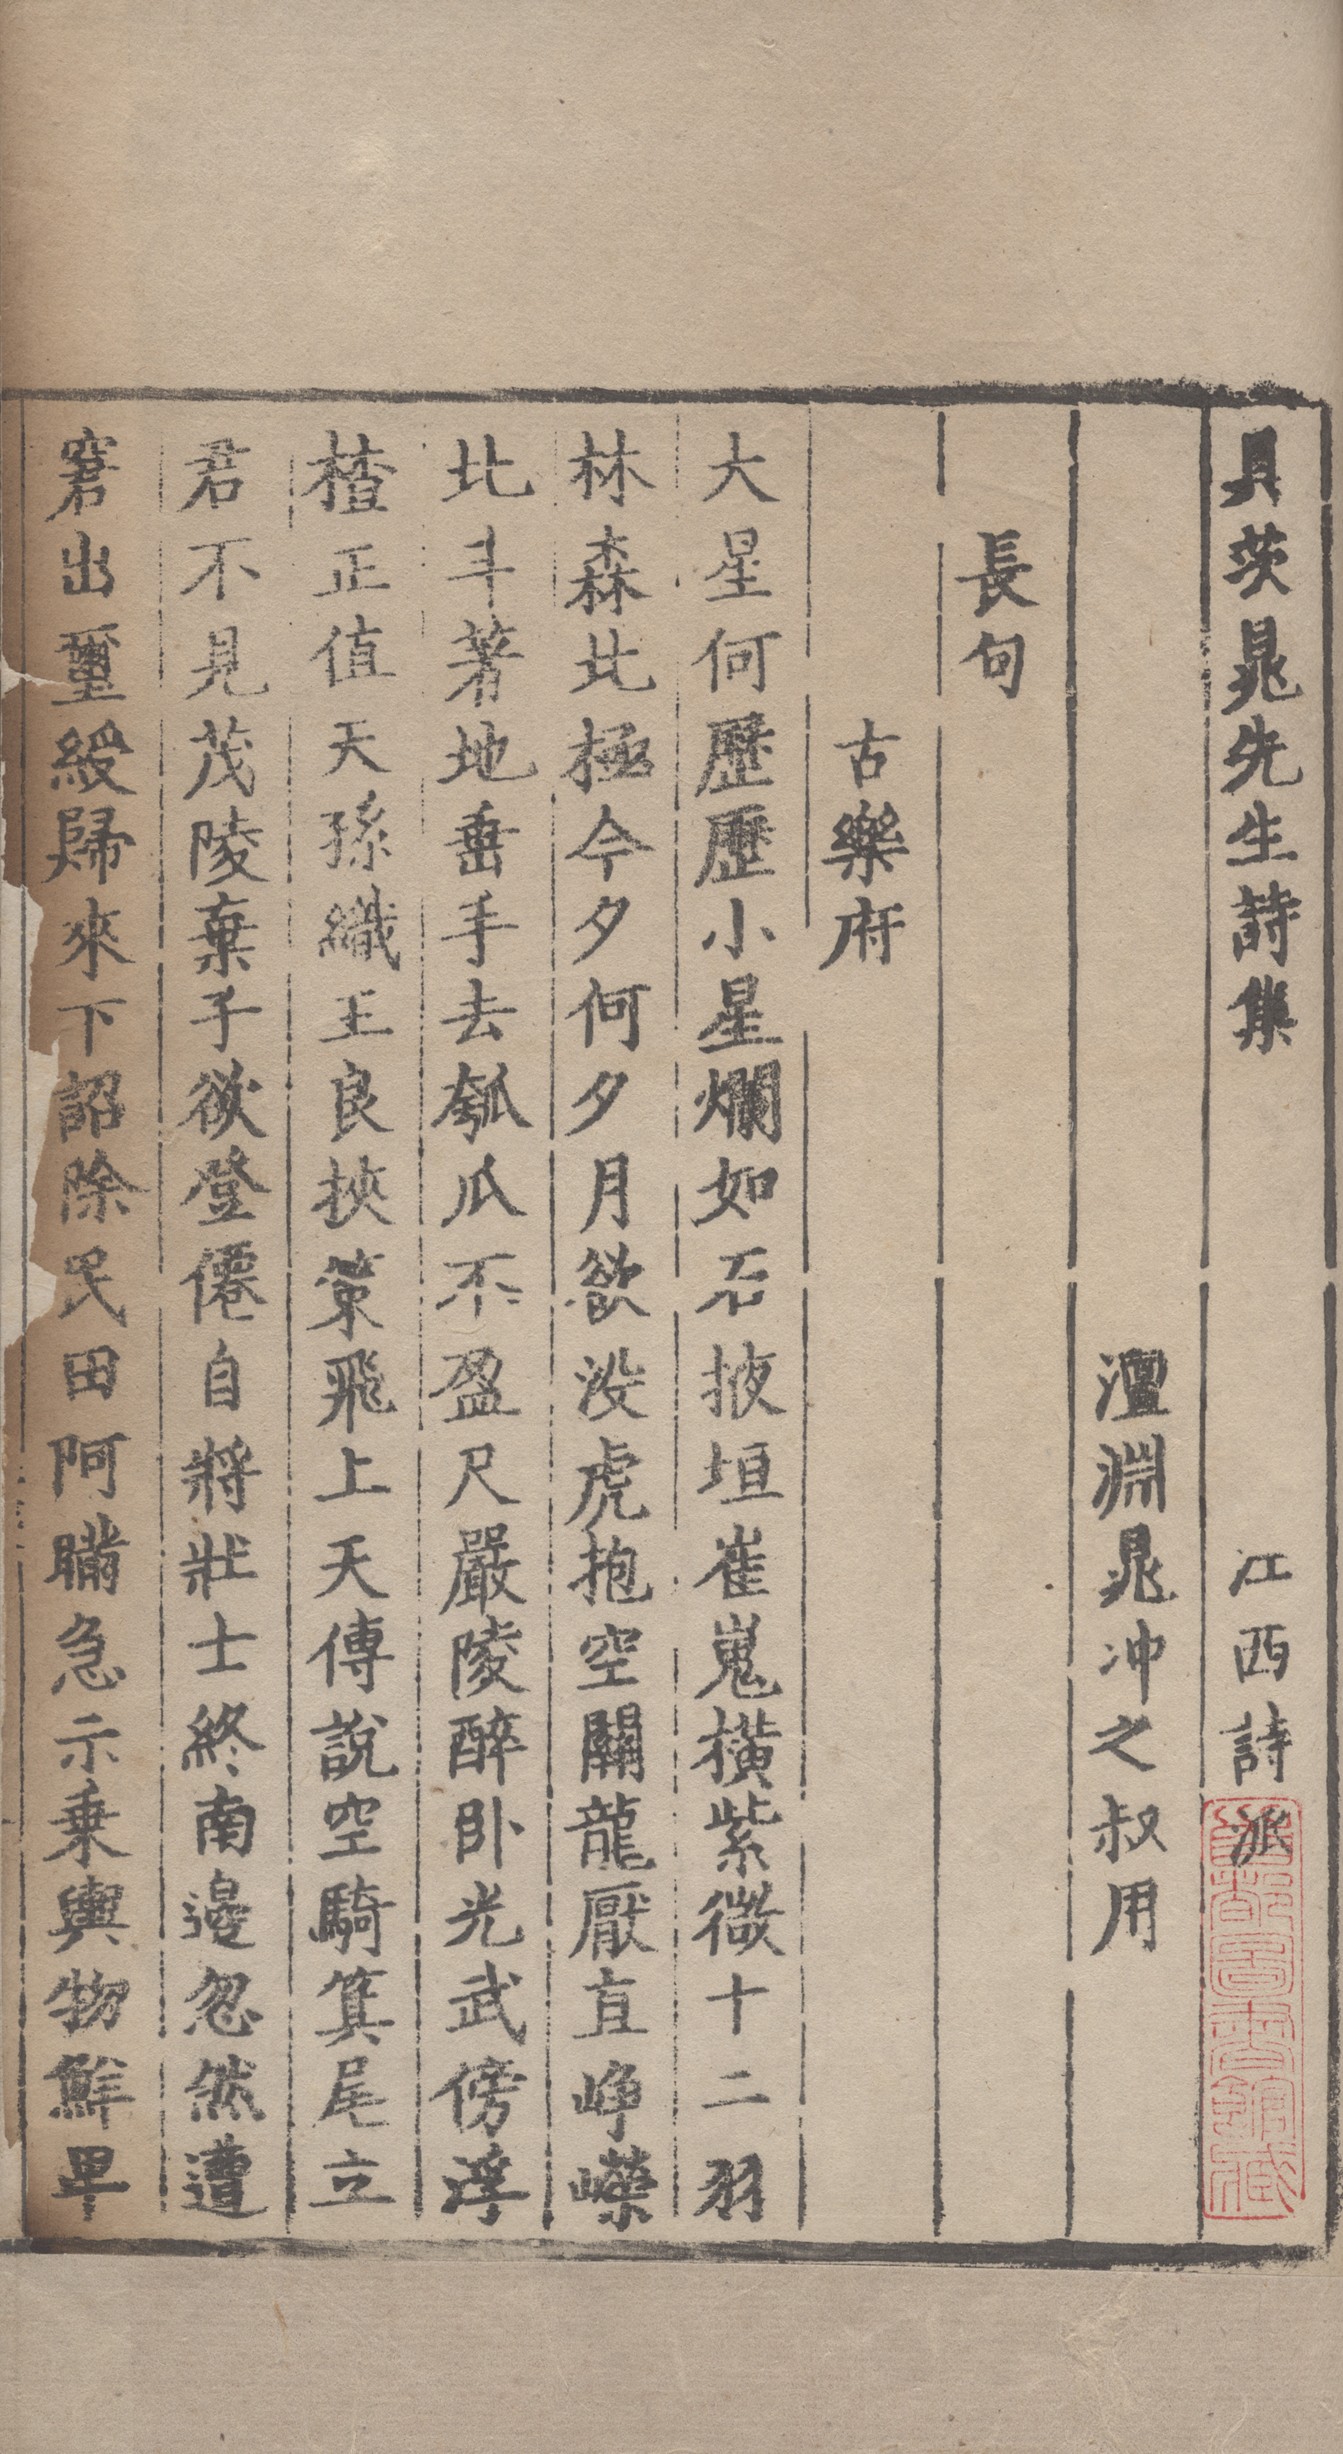 具茨晁先生詩集 江西詩派
澶淵晁冲之叔用
長句
古樂府
大星何歷歷小星爛如石掖垣崔嵬橫紫微十二羽
林森北極今夕何夕月欲没虎抱空關龍厭直崢嶸
北斗著地垂手去瓠瓜不盈尺嚴陵醉卧光武傍浮
楂正值天孫織王良挾策飛上天傅說空騎箕尾立
君不見茂陵棄子欲登僊自將壯士終南邊忽然遭
窘出璽綬歸來下詔除民田阿瞞急示乗輿物鮮卑